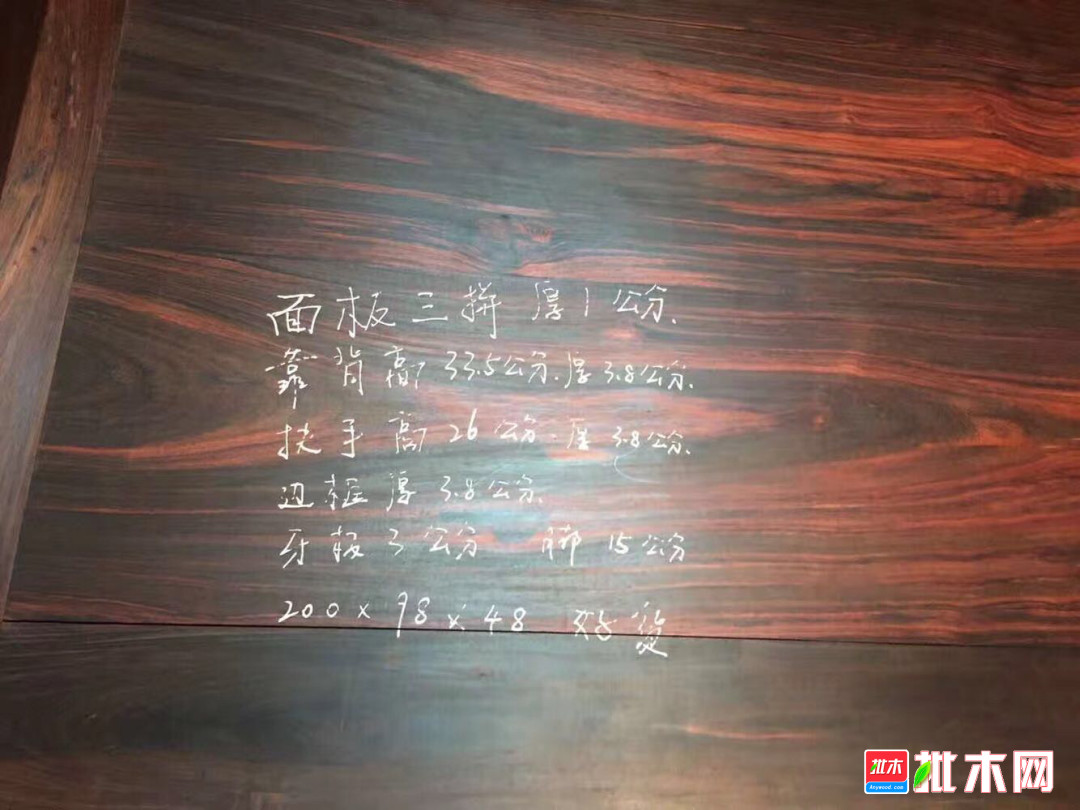 面板三拼厚1公分.
靠背高33.5公分.厚3.8公分.
扶手高26公分.厚3.8公分.
边框厚3.8公分.
牙板3公分 脚15公分
200×98×48 好货
批木
Anywood.com
批木网